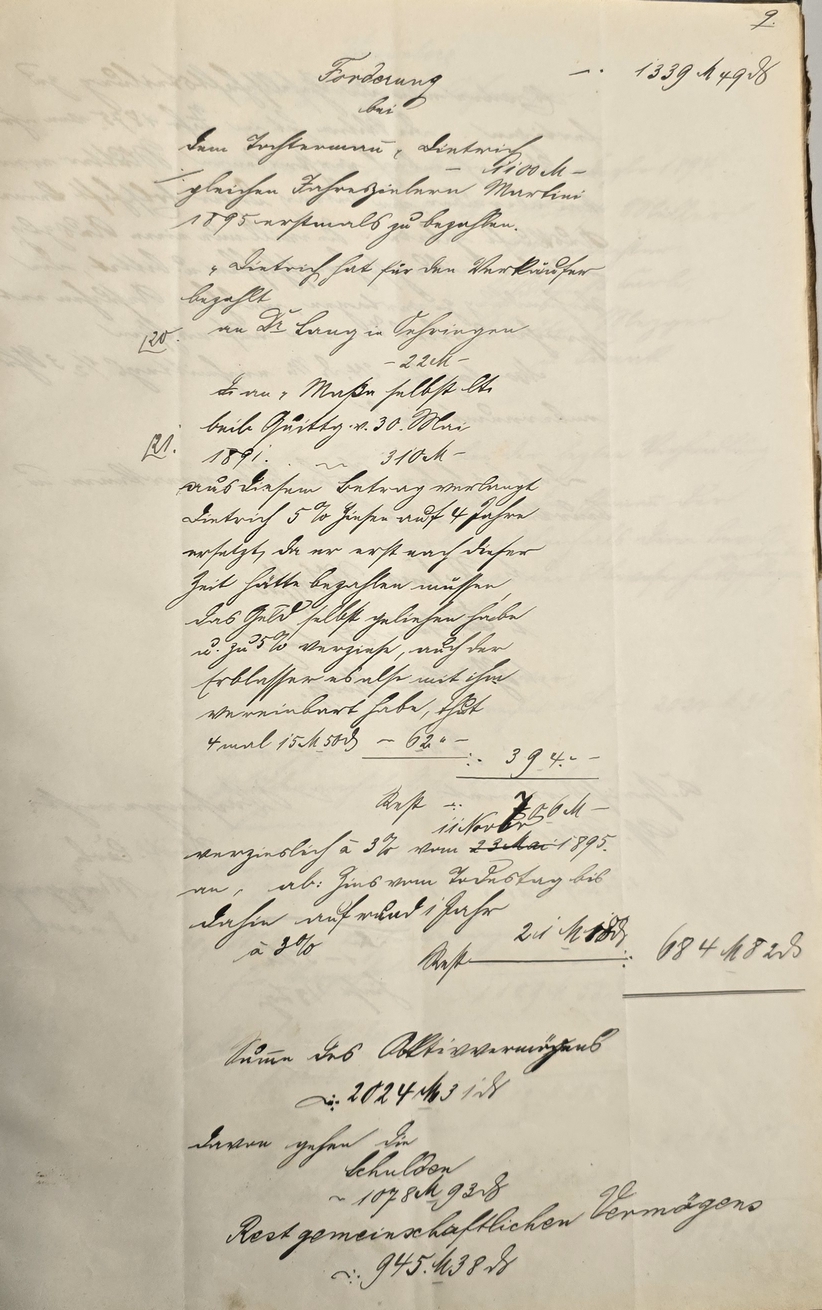 9.
1339 M 49 ₰
Forderung
bei
dem Tochtermann, Dietrich
1100 M –
gleichen Jahreszielern Martini
1895 erstmals zu bezahlen.
" Dietrich hat für den Verkäufer
bezahlt
[20. an Dr Lang in Gehringen
– 22 M –
an " selbst lt.
beil. Quittg. v. 30. Mai
[21. 1891. 310 M –
aus diesem Betrag verlangt
Dietrich 5 % Zinsen auf 4 Jahre
ersetzt, da er erst nach dieser
Zeit hätte bezahlen müssen,
das Geld selbst geliehen habe
u. zu 5 % verzinse, auch der
Erblasser es also mit ihm
vereinbart habe, thut
4 mal 15 M 50 ₰ – 62 " –
394. " –
Rest 706 M –
11 Novbr
verzinslich à 3 % vom 23 Mai 1895.
an, ab: Zins vom Todestag bis
dahin auf rund 1 Jahr
à 3 % 21 M 18 ₰
Rest 684 M 82 ₰
Summe des Aktivvermögens
2024 M 31 ₰
davon gehen die
Schulden
1078 M 93 ₰
Rest gemeinschaftlichen Vermögens
945. M 38 ₰